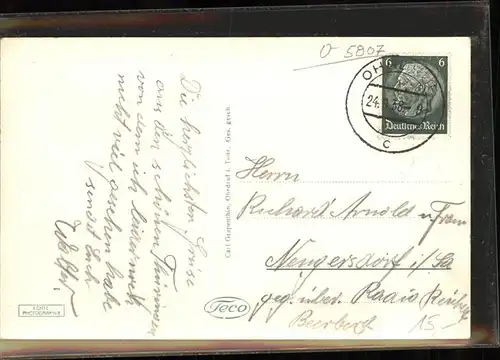 O 5807
Die herzlichsten Grüße
aus dem schönen Thüringen
von dem ich leider noch
nicht viel gesehen habe
sendet Euch
Walter
ECHTE
PHOTOGRAPHIE
Carl Gerpenthin, Ohrdruf i. Thür. Ges. gesch.
Teco
6 6
Deutsches Reich
OH
24.
c
Herrn
Richard Arnold u. Frau
Neugersdorf i/Sa
geg. über Radio
15,-